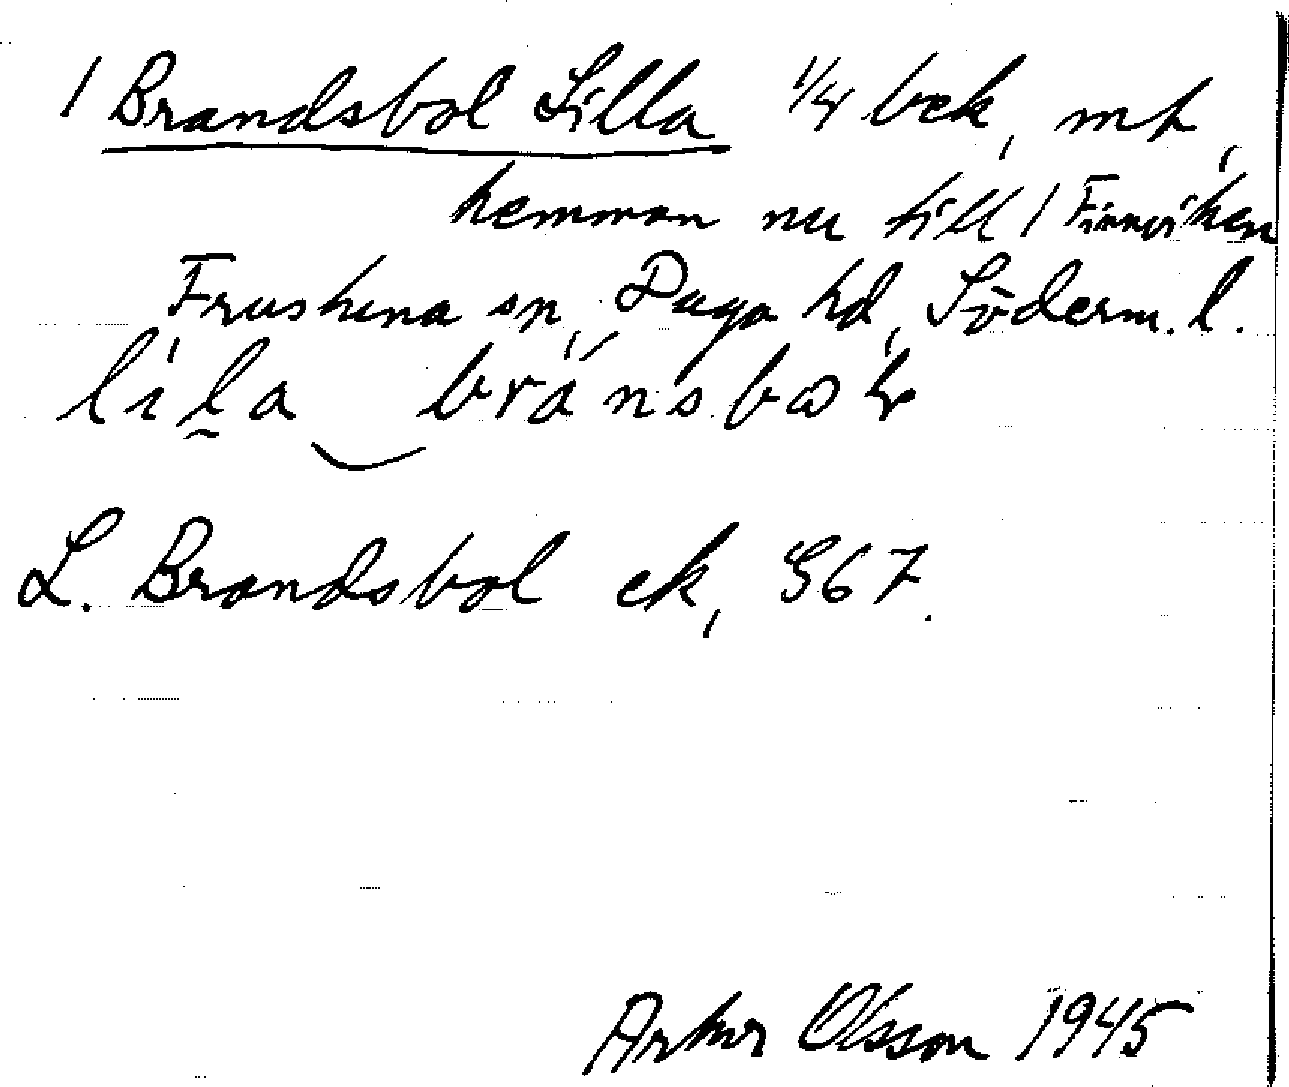 1 Brandsbol Lilla 1/4 bek, mh,
hemman nu till 1 Finnviken
Fruskuna sn, Daga hd, Söderm. l.
L. Brandsbol ek, S67.
Artur Olsson 1945